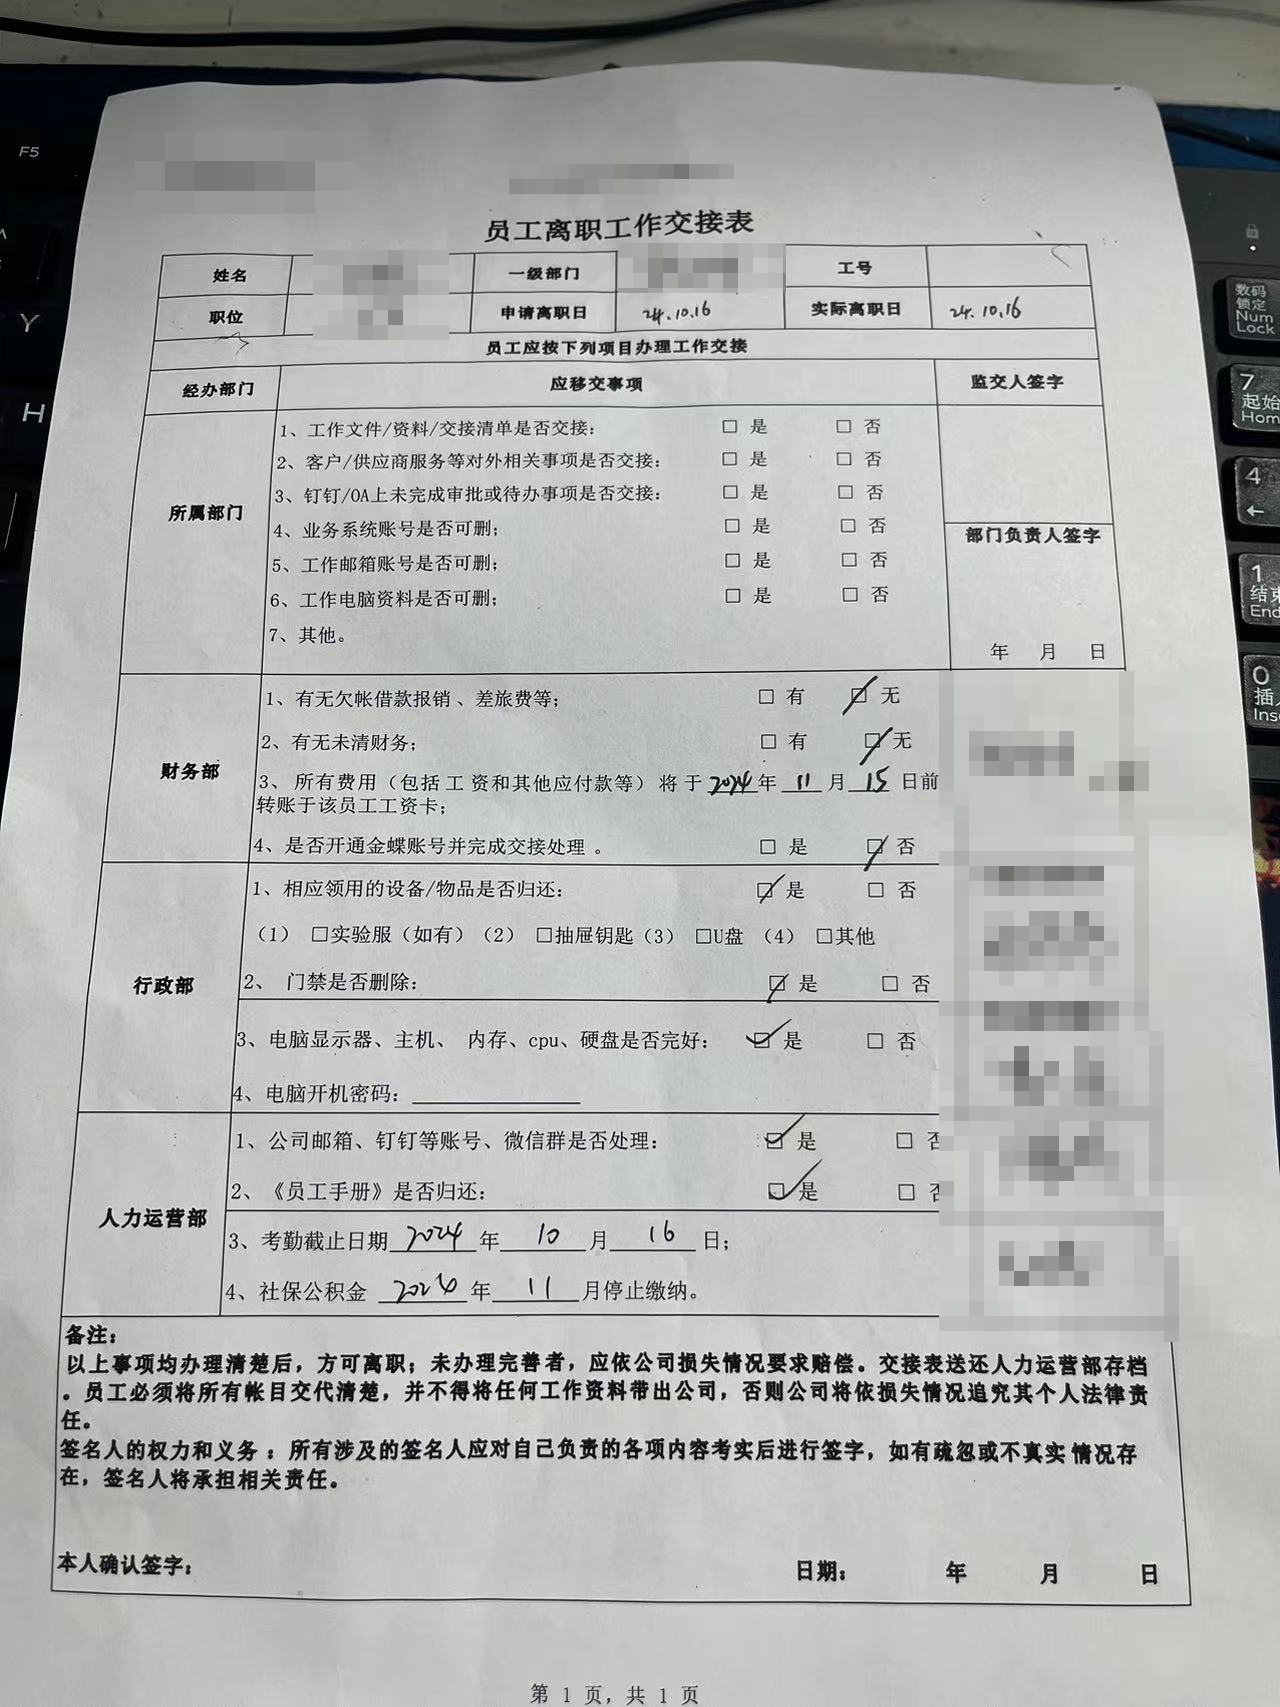 员工离职工作交接表
姓名 一级部门 工号
职位 申请离职日 24.10.16 实际离职日 24.10.16
员工应按下列项目办理工作交接
经办部门 应移交事项 监交人签字
所属部门
1、工作文件/资料/交接清单是否交接： □ 是 □ 否
2、客户/供应商服务等对外相关事项是否交接： □ 是 □ 否
3、钉钉/OA上未完成审批或待办事项是否交接： □ 是 □ 否
4、业务系统账号是否可删； □ 是 □ 否
5、工作邮箱账号是否可删； □ 是 □ 否
6、工作电脑资料是否可删； □ 是 □ 否
7、其他。
部门负责人签字
年 月 日
财务部
1、有无欠帐借款报销 、差旅费等； □ 有 □ 无
2、有无未清财务； □ 有 □ 无
3、 所有费用（包括工 资和其他应付款等）将 于 2024 年 11 月 15 日前
转账于该员工工资卡；
4、是否开通金蝶账号并完成交接处理 。 □ 是 □ 否
行政部
1、相应领用的设备/物品是否归还： □ 是 □ 否
（1） □实验服（如有）（2） □抽屉钥匙（3） □U盘 （4） □其他
2、 门禁是否删除： □ 是 □ 否
3、电脑显示器、主机、 内存、cpu、硬盘是否完好： □ 是 □ 否
4、电脑开机密码：
人力运营部
1、公司邮箱、钉钉等账号、微信群是否处理： □ 是 □ 否
2、《员工手册》是否归还： □ 是 □ 否
3、考勤截止日期 2024 年 10 月 16 日；
4、社保公积金 2024 年 11 月停止缴纳。
备注：
以上事项均办理清楚后，方可离职；未办理完善者，应依公司损失情况要求赔偿。交接表送还人力运营部存档
。员工必须将所有帐目交代清楚，并不得将任何工作资料带出公司，否则公司将依损失情况追究其个人法律责
任。
签名人的权力和义务 ：所有涉及的签名人应对自己负责的各项内容考实后进行签字，如有疏忽或不真实情况存
在，签名人将承担相关责任。
本人确认签字： 日期： 年 月 日
第 1 页，共 1 页
F5
Y
H
数码
锁定
Num
Lock
7
起始
Home
4
←
1
结束
End
0